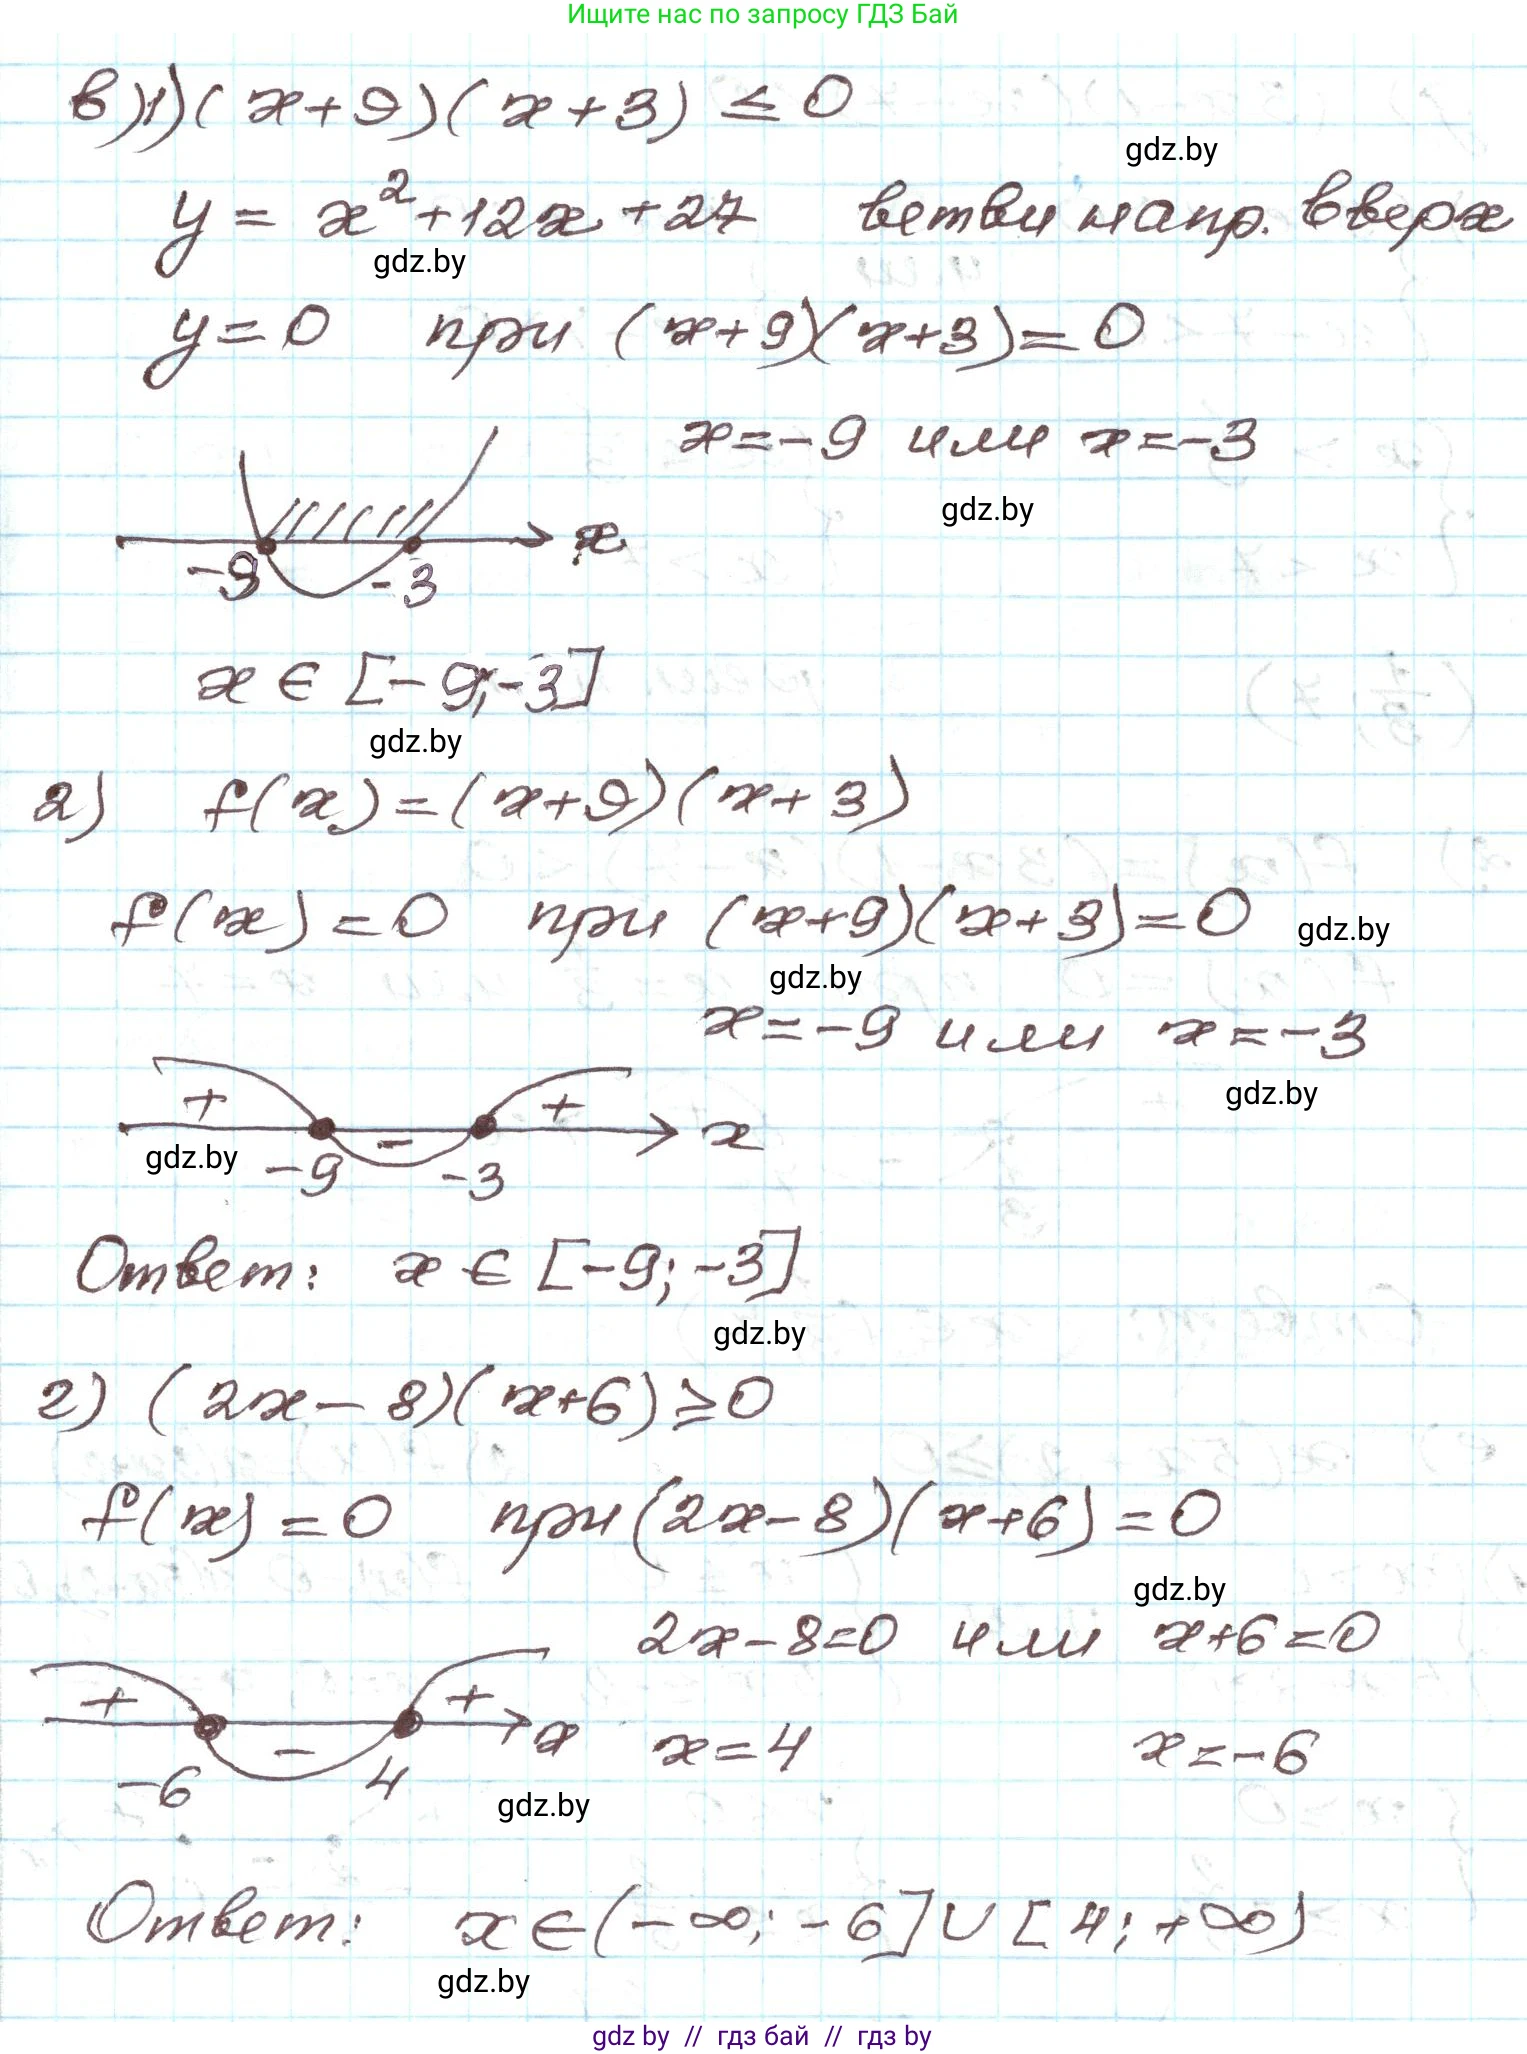 Ищите нас по запросу ГДЗ Бай
в) 1) (x+9)(x+3) ≤ 0
gdz.by
y = x² + 12x + 27 ветви напр. вверх
gdz.by
y = 0 при (x+9)(x+3) = 0
x = -9 или x = -3
gdz.by
x
-9 -3
x ∈ [-9; -3]
gdz.by
2) f(x) = (x+9)(x+3)
f(x) = 0 при (x+9)(x+3) = 0 gdz.by
gdz.by
x = -9 или x = -3
gdz.by
+ - + x
gdz.by -9 -3
Ответ: x ∈ [-9; -3]
gdz.by
г) (2x - 8)(x+6) ≥ 0
f(x) = 0 при (2x - 8)(x+6) = 0
gdz.by
2x - 8 = 0 или x+6 = 0
+ - + x
x = 4 x = -6
-6 4
gdz.by
Ответ: x ∈ (-∞; -6] ∪ [4; +∞)
gdz.by
gdz by // гдз бай // гдз by